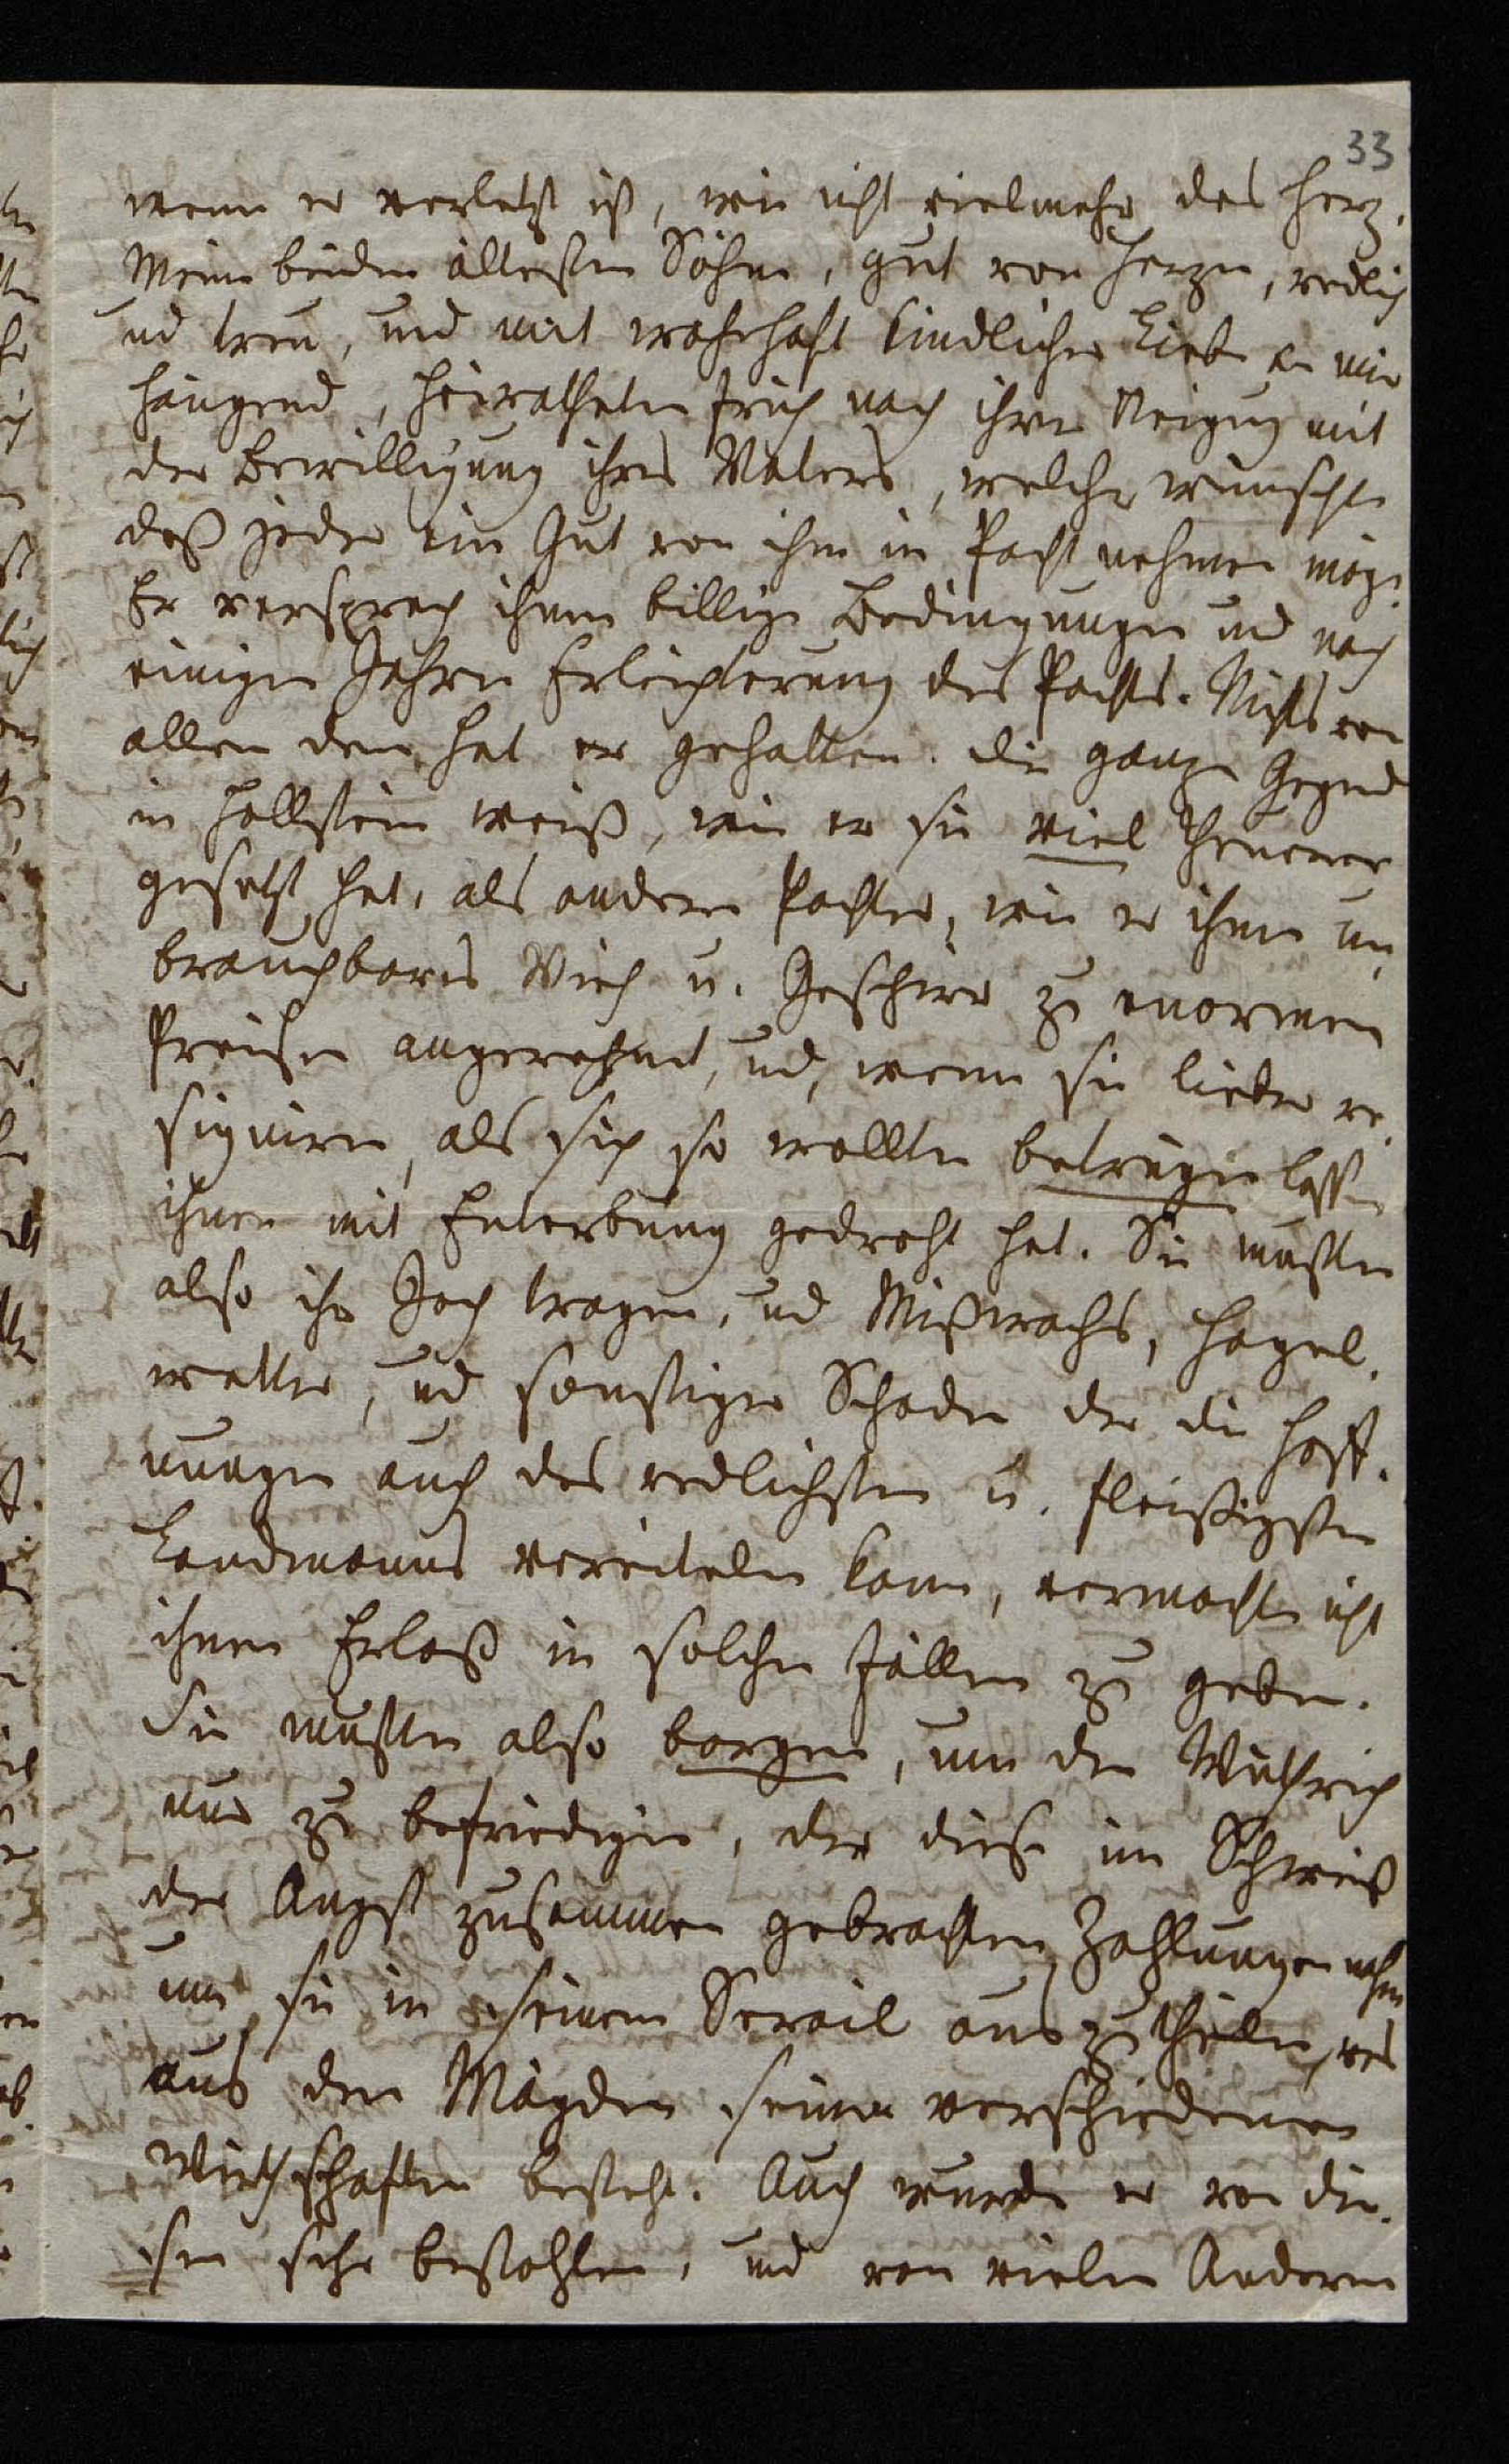 33
wenn er verletzt ist, wie nicht vielmehr das Herz.
Meine beiden ältesten Söhne, gut von Herzen, redlich
und treu, und mit wahrhaft kindlicher Liebe an mir
hängend, heiratheten früh nach ihrer Neigung mit
der Bewilligung ihres Vaters, welcher wünschte
daß jeder ein Gut von ihm in Pacht nehmen möge.
Er versprach ihnen billige Bedingungen und nach
einigen Jahren Erleichterung des Pachts. Nichts von
allen dem hat er gehalten. die ganze Gegend
in Hollstein weiß, wie er sie viel theurer
gesetzt hat, als andere Pachter, wie er ihnen un
brauchbares Vieh u. Geschirr zu enormen
Preisen angerechnet, und, wenn sie lieber re-
signiren, als sich so wollten betrügen lassen
ihnen mit Enterbung gedroht hat. Sie mußten
also ihr Joch tragen, und Mißwachs, Hagel-
wetter, und sonstiger Schaden der die Hoff-
nungen auch des redlichsten u. fleißigsten
Landmanns vereiteln kann, vermochte nicht
ihnen Erlaß in solchen Fällen zu geben.
Sie mußten also borgen, um den Wüthrich
nur zu befriedigen, der diese im Schweiß
der Angst zusammen gebrachten Zahlungen nahm
um sie in seinem Serail aus zu theilen, das
aus den Mägden seiner verschiedenen
Wirthschaften besteht. Auch wurde er von die-
sen sehr bestohlen, und von vielen Andern